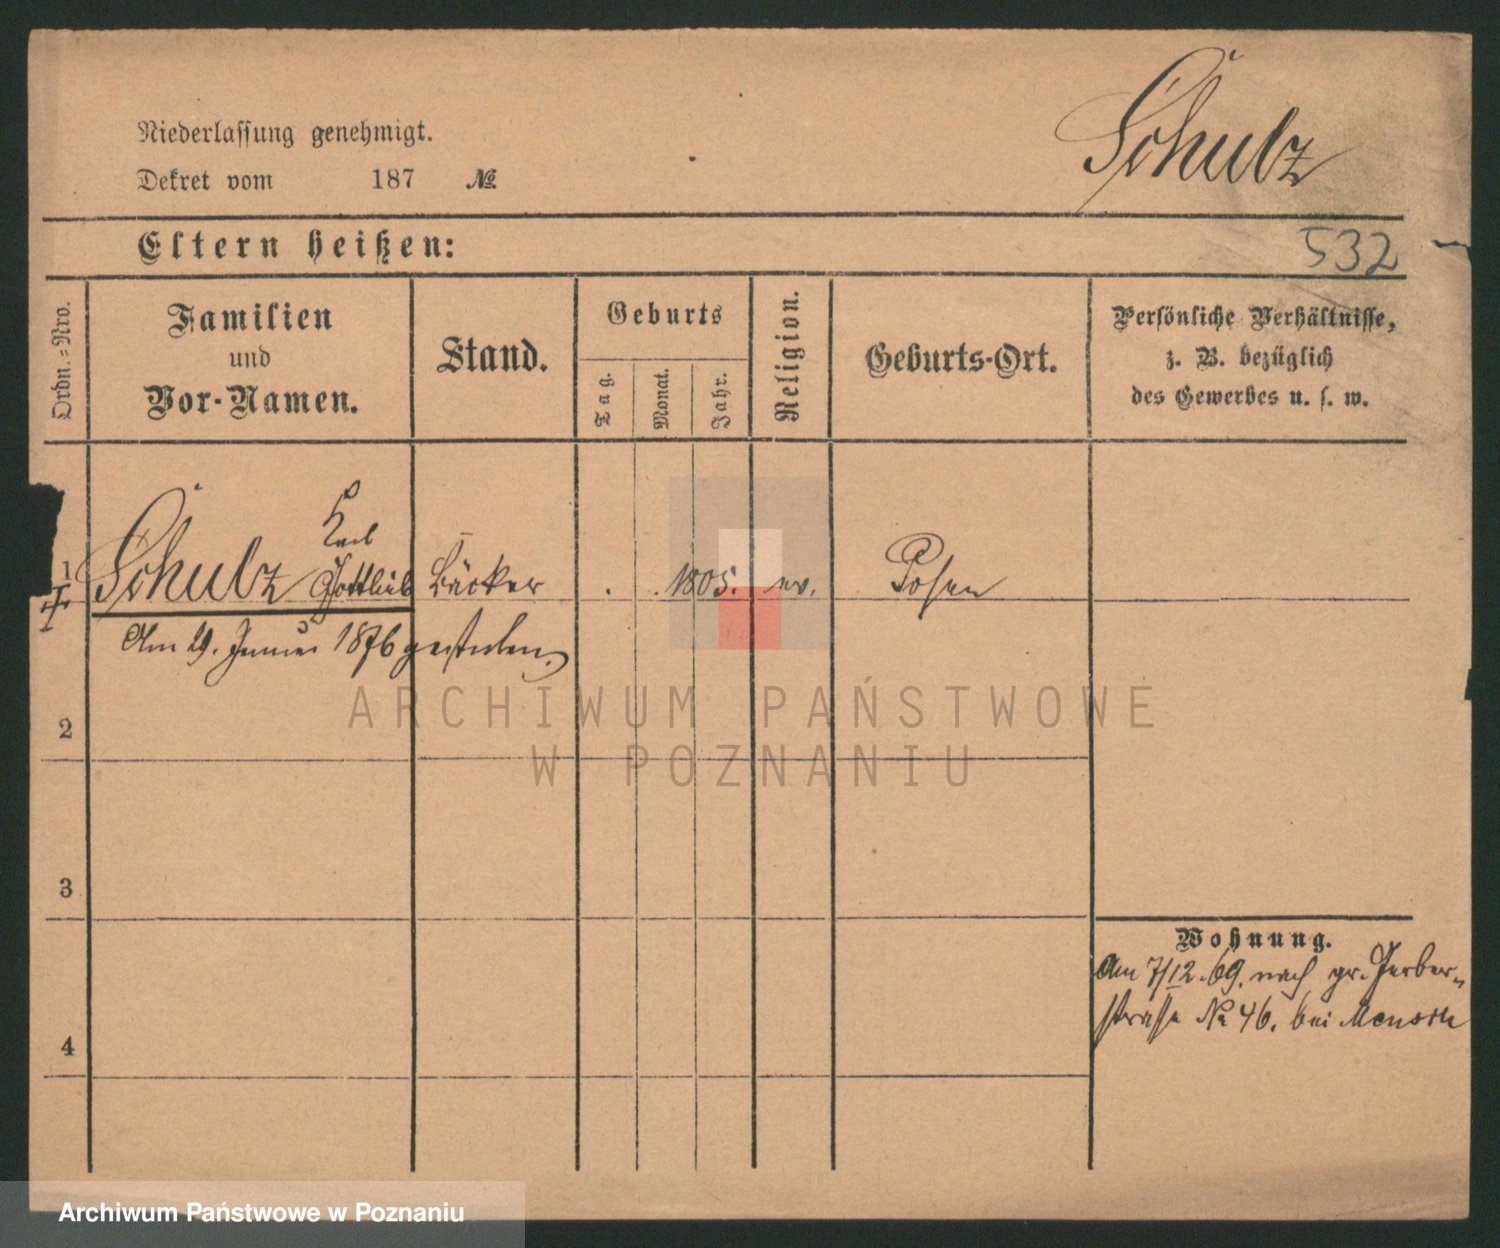 Niederlassung genehmigt.
Dekret vom 187 №
Schulz
Eltern heißen:
532
Ordn.=Nro.
Familien
und
Vor-Namen.
Stand.
Geburts
Tag.
Monat.
Jahr.
Religion.
Geburts-Ort.
Persönliche Verhältnisse,
z. B. bezüglich
des Gewerbes u. s. w.
1
Schulz Karl
Gottlieb
Bäcker . . 1805. ev. Posen
Am 29. Januar 1876 gestorben.
2
3
4
Wohnung.
Am 7/12. 69. nach gr. Gerber-
strasse № 46. bei
ARCHIWUM PAŃSTWOWE
W POZNANIU
Archiwum Państwowe w Poznaniu